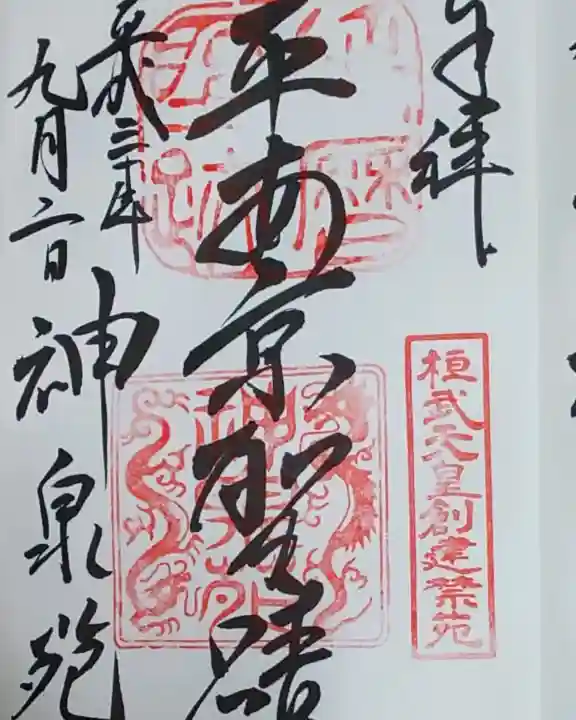 奉拝
桓武天皇創建禁苑
平安京聖蹟
平成三十年
九月二日
神泉苑